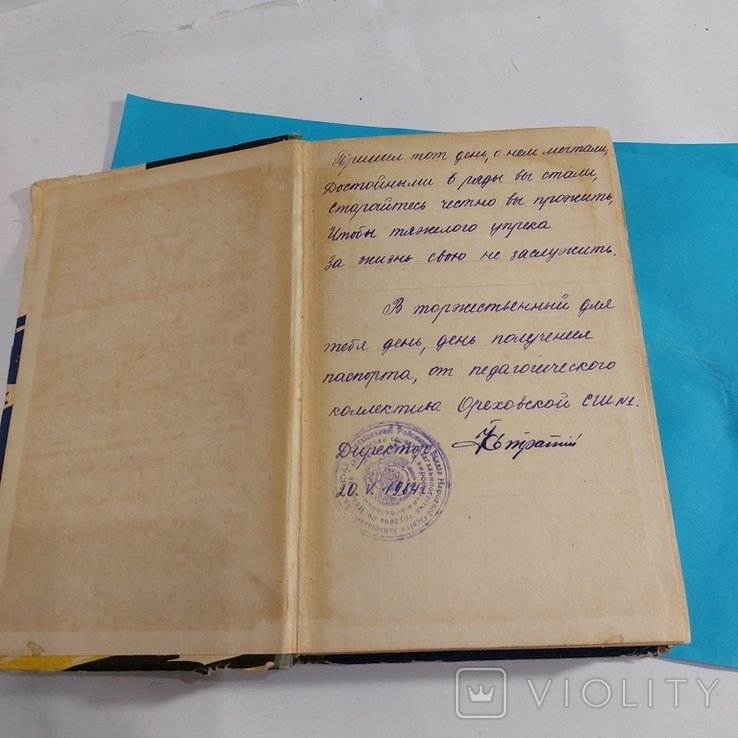 Пришел тот день, о нем мечтали,
Достойными в ряды вы стали,
Старайтесь честно вы прожить,
Чтобы тяжелого упрека
За жизнь свою не заслужить.
В торжественный для
тебя день, день получения
паспорта, от педагогического
коллектива Ореховской СШ №1.
Директор
20. V. 1964г
VIOLITY